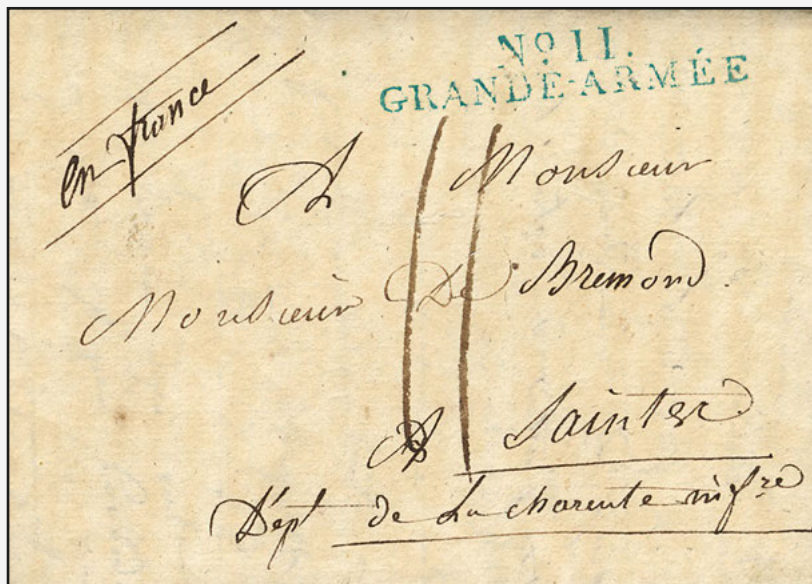 No 11.
GRANDE-ARMÉE
en france
A Monsieur
Monsieur De Bremond
A Saintes
Dépt de La charente infre
11